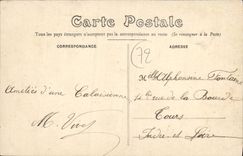 Carte Postale
Tous les pays étrangers n'acceptent pas la correspondance au recto (Se renseigner à la Poste)
CORRESPONDANCE
ADRESSE
72
Alphonsine Fontaine
rue de la
Amitiés d'une Calaisienne
Tours
M.
Indre et Loire